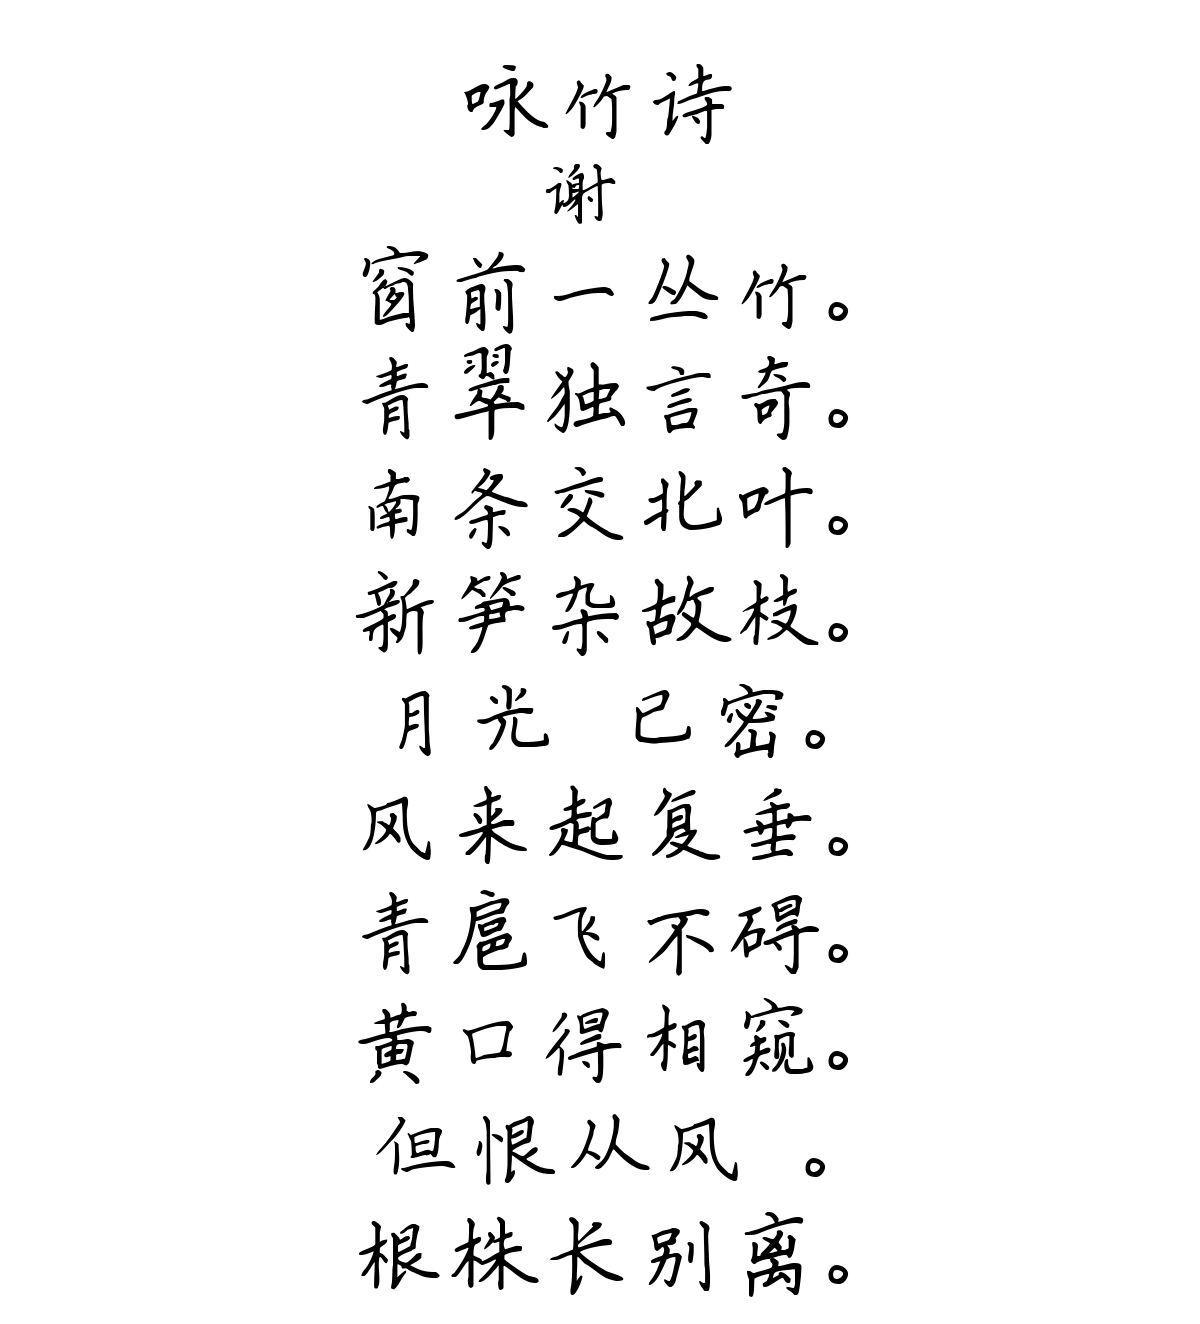 咏竹诗
谢
窗前一丛竹。
青翠独言奇。
南条交北叶。
新笋杂故枝。
月光 已密。
风来起复垂。
青扈飞不碍。
黄口得相窥。
但恨从风 。
根株长别离。